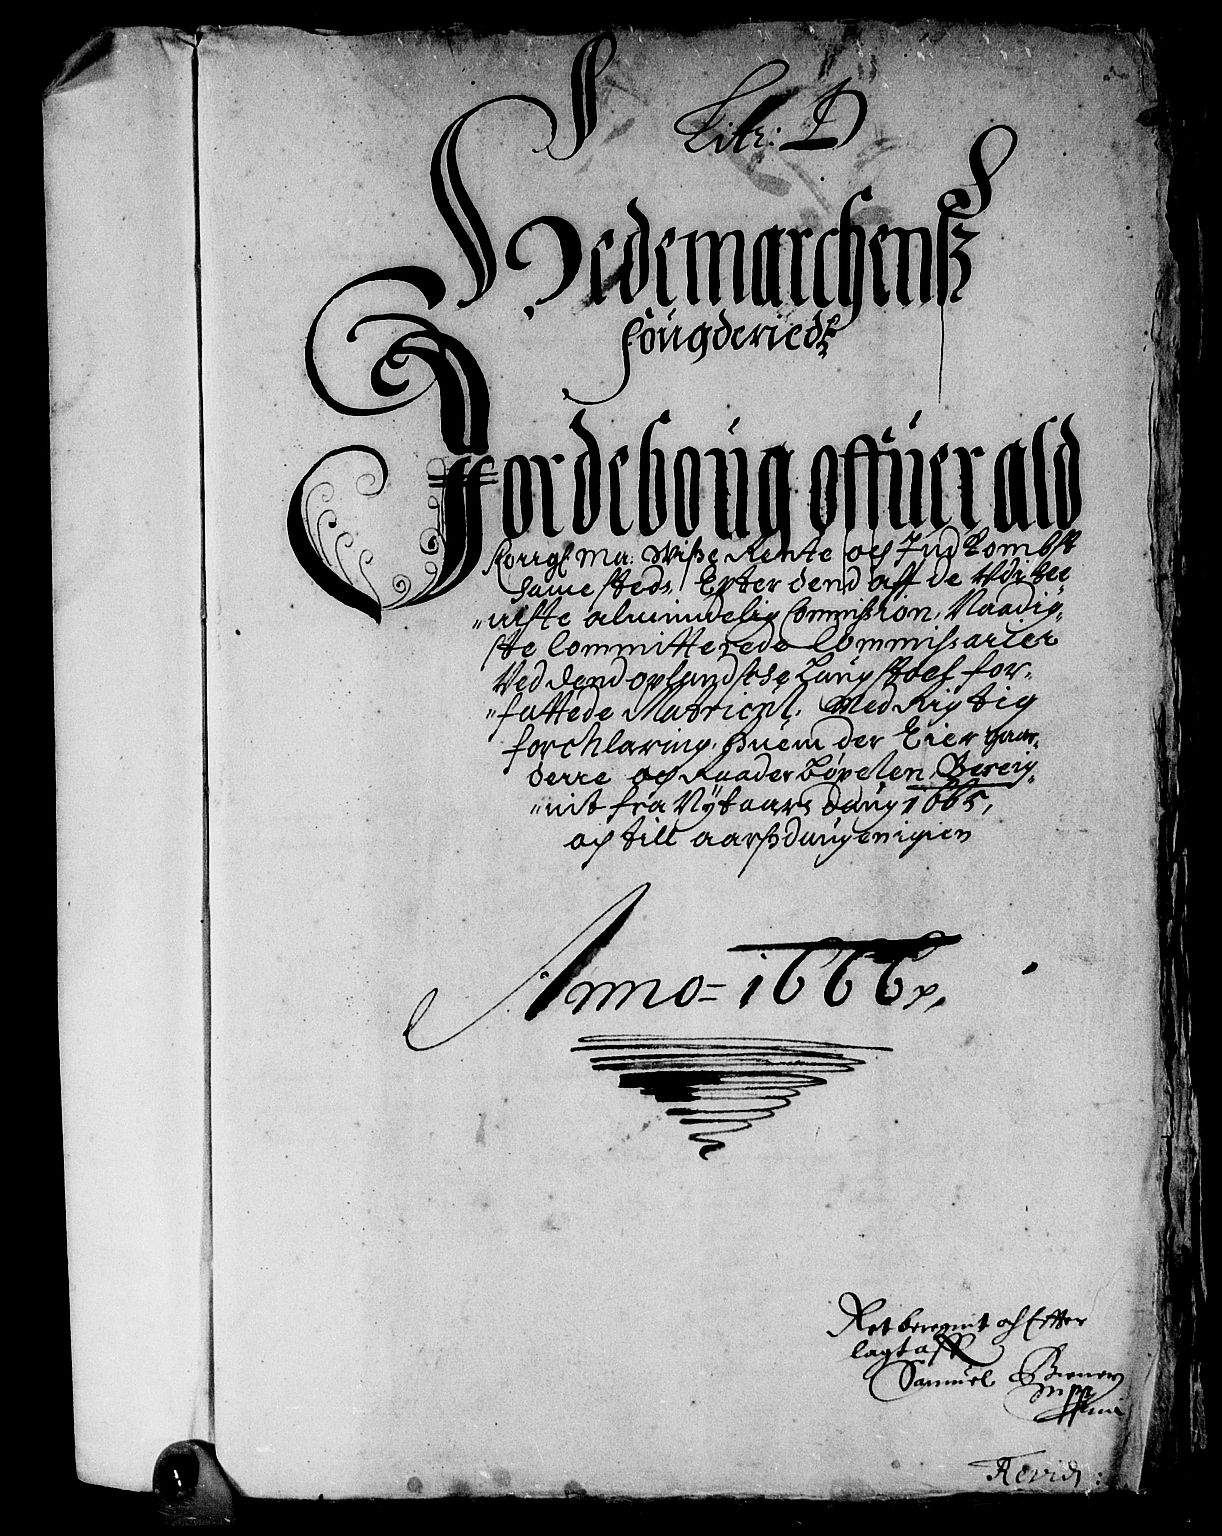 Litr: D
Hedemarchensz
fougderiedz
Jordeboug offuer ald
Konngl Ma: Wisze Rente och Indkombst
samesteds. Epter dend aff de
almindelig Commiszion, Naadig-
ste Committerede Commissarier
Ved dend oplandske Laugstoel for-
"fattede Matricul. Med Rigtig
forchlaring, huem der Eier gaar-
derre och Raader Bøxelen, Bereig-
"nit fra Nytaars daug 1665,
och till aarszdaugen igien
Anno = 1666
Ret beregnit och Efter
lagt aff
Samuel
mpp
Revid: